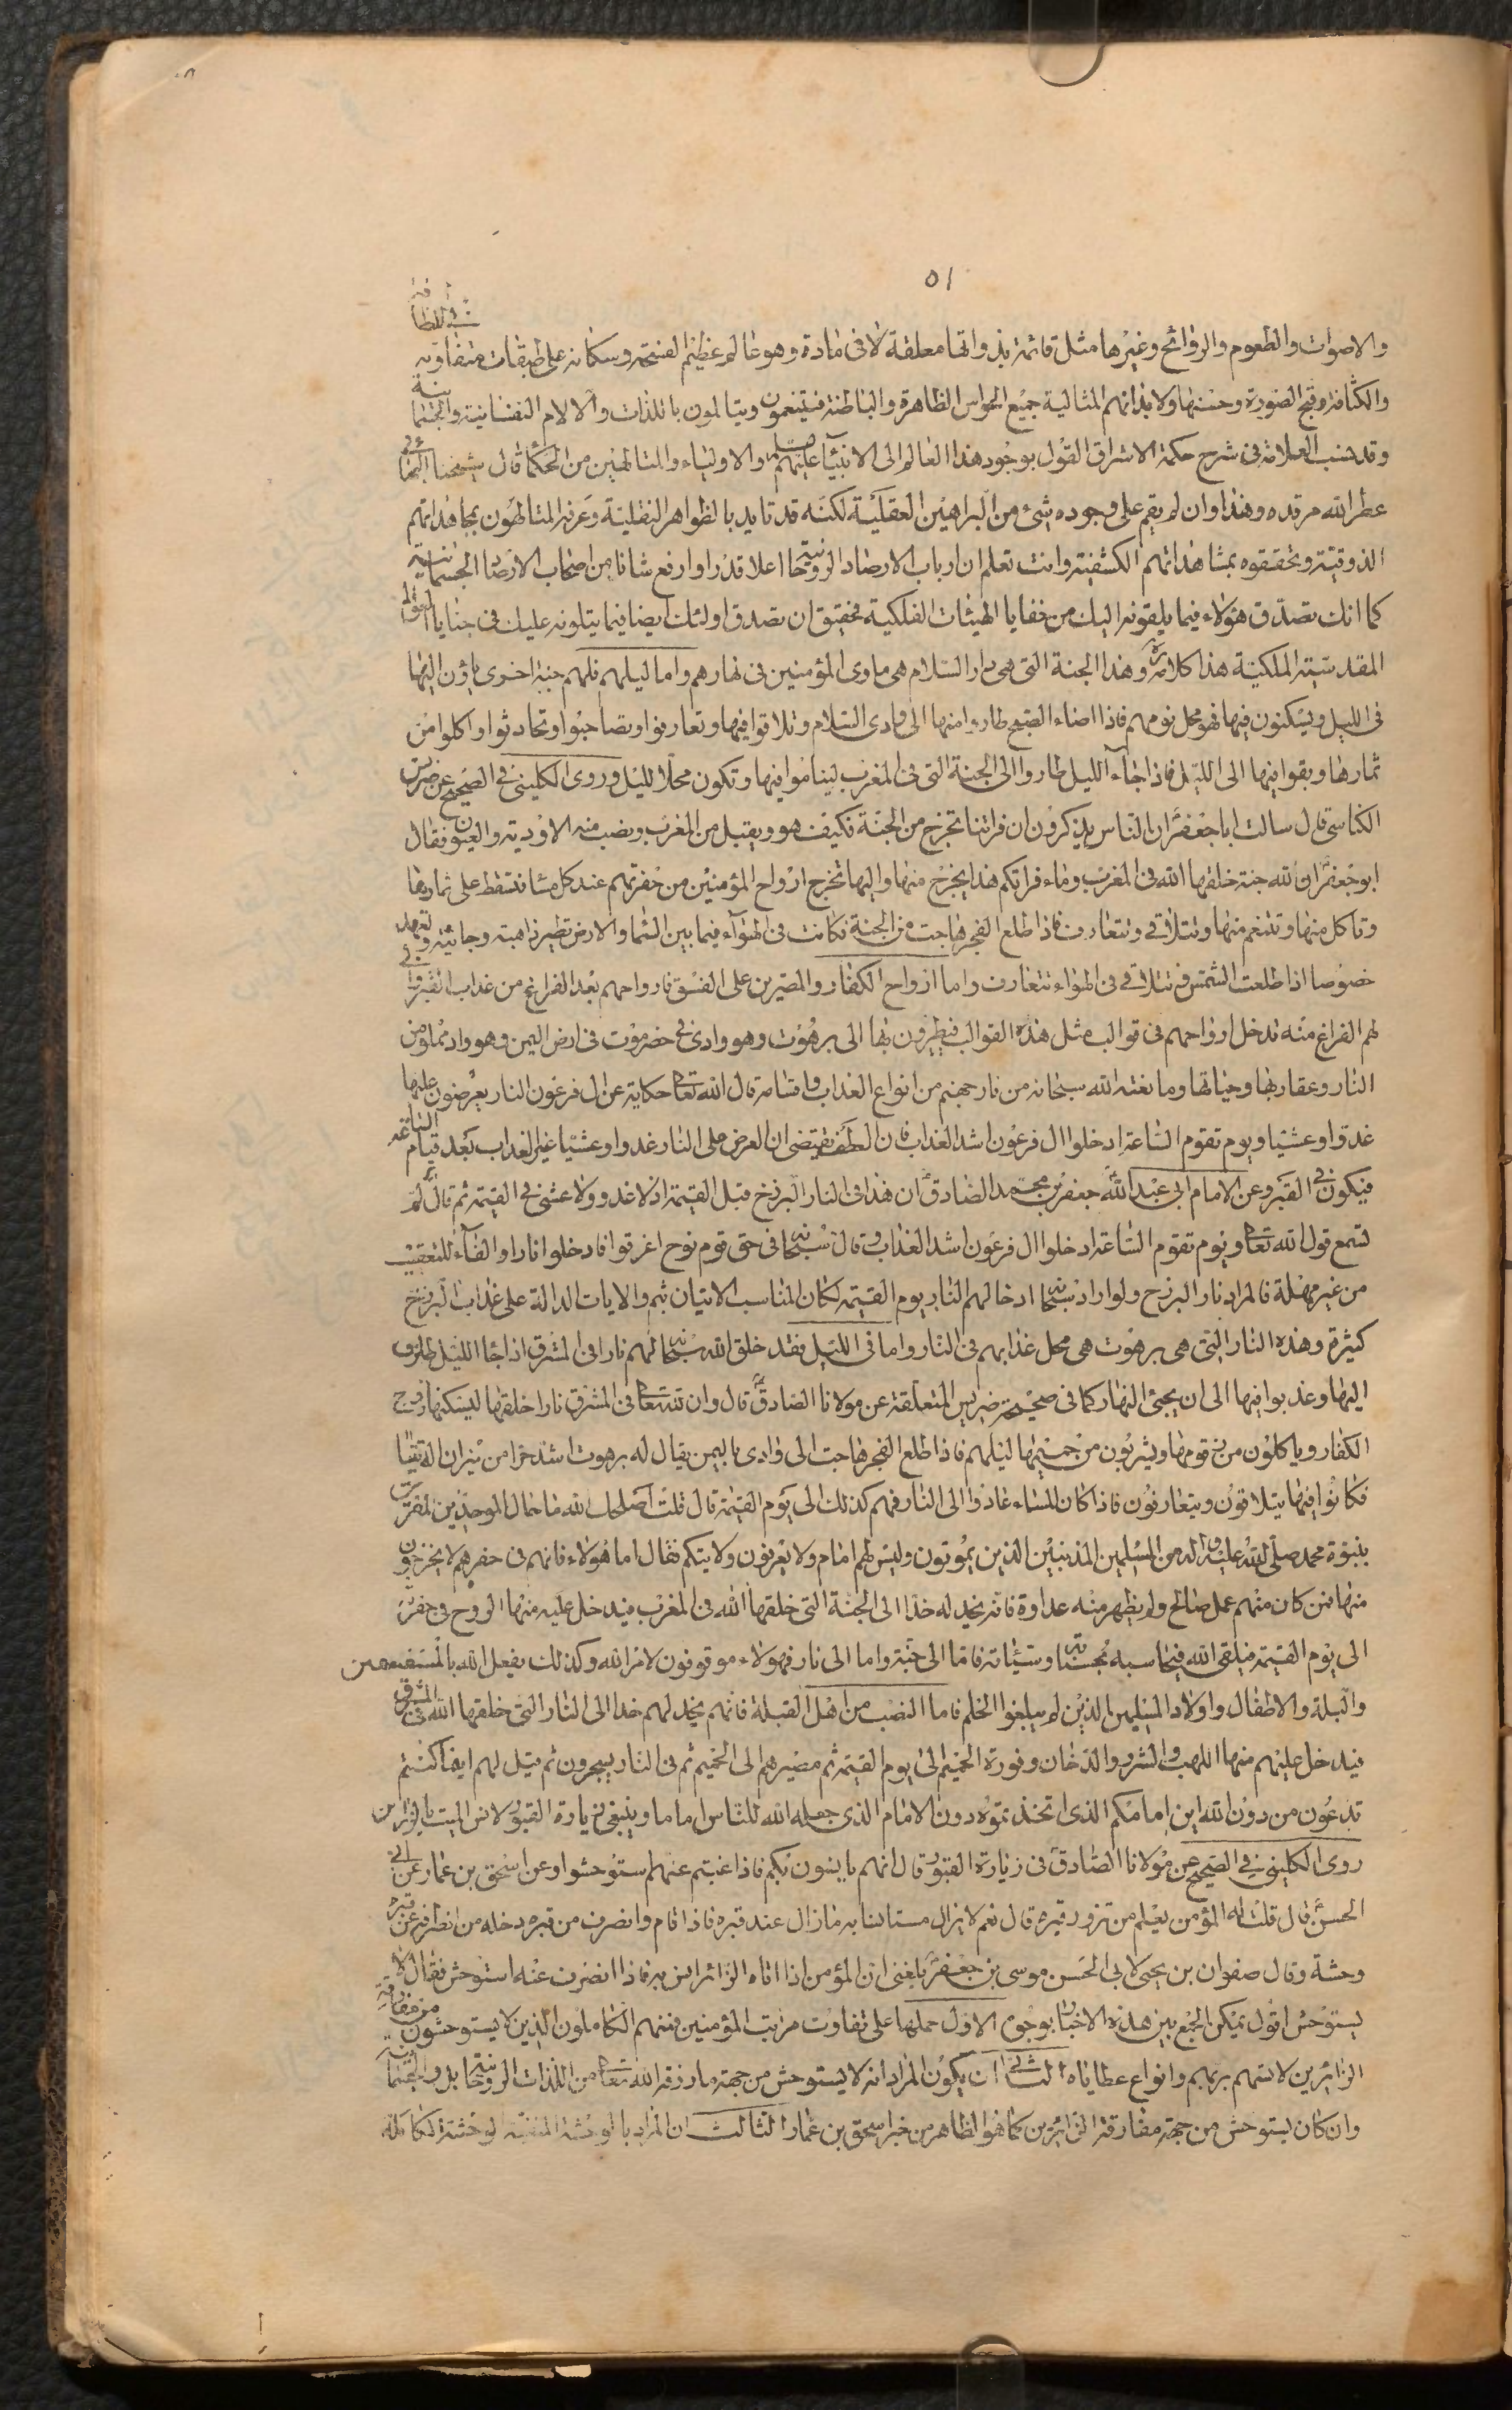 ٥١
والاصوات والطعوم والروائح وغيرها مثل قائمة بذواتها معلقة لا في مادة وهو عالم عظيم الفسحة وسكانه على طبقات متفاوتة في اللطافة
والكثافة وقبح الصورة وحسنها ولابدانهم المثالية جميع الحواس الظاهرة والباطنة فيتنعمون ويتالمون باللذات والالام النفسانية والجسمانية
وقد نسب العلامة في شرح حكمة الاشراق القول بوجود هذا العالم الى الانبياء عليهم السلم والاولياء والمتالهين من الحكما قال شيخنا البهائي
عطر الله مرقده وهذا وان لم يقم على وجوده شيء من البراهين العقلية لكنه قد تايد بالظواهر النقلية وعرفه المتالهون بمجاهداتهم
الذوقية وتحققوه بمشاهداتهم الكشفية وانت تعلم ان ارباب الارصاد الروحانية اعلا قدرا وارفع شانا من اصحاب الارصاد الجسمانية
كما انك تصدق هؤلاء فيما يلقونه اليك من خفايا الهيئات الفلكية فحقيق ان تصدق اولئك ايضا فيما يتلونه عليك في خبايا العوالم
المقدسية الملكية هذا كلامه ره وهذا الجنة التي هي دار السلام هي ماوى المؤمنين في نهارهم واما ليلهم فلهم جنة اخرى ياؤن اليها
في الليل ويسكنون فيها فهو محل نومهم فاذا اضاء الصبح طاروا منها الى وادى السلام وتلاقوا فيها وتعارفوا وتصاحبوا وتحادثوا واكلوا من
ثمارها وبقوا فيها الى الليل فاذا جآء الليل طاروا الى الجنة التي في المغرب ليناموا فيها وتكون محلا لليل وروى الكليني في الصحيح عن ضريس
الكناسي قال سالت ابا جعفر ان الناس يذكرون ان فراتنا تخرج من الجنة فكيف هو ويقبل من المغرب ويصب منه الاودية والعيون فقال
ابو جعفر ان لله جنة خلقها الله في المغرب وماء فراتكم هذا يخرج منها واليها تخرج ارواح المؤمنين من حفرتهم عند كل مسا فتسقط على ثمارها
وتاكل منها وتتنعم منها وتتلاقى وتتعارف فاذا طلع الفجر هاجت من الجنة فكانت في الهوآء فيما بين السما والارض تطير ذاهبة وجائية وتعهد
خصوصا اذا طلعت الشمس فتتلاقى في الهواء تتعارف واما ارواح الكفار والمصيرين على الفسق فارواحهم بعد الفراغ من عذاب القبر
لهم الفراغ منه تدخل ارواحهم في قوالب مثل هذه القوالب فيطيرون بها الى برهوت وهو وادى في حضرموت في ارض اليمن وهو واد مملو من
النار وعقاربها وحياتها وما نعته الله سبحانه من نار جهنم من انواع العذاب واقسامه قال الله تعا حكاية عن ال فرعون النار يعرضون عليها
غدوا وعشيا ويوم تقوم الساعة ادخلوا ال فرعون اشد العذاب فان العطف يقتضى ان العرض على النار غدوا وعشيا غير العذاب بعد قيام الساعة
فيكون في القبر وعن الامام ابي عبد الله جعفر بن محمد الصادق ان هذا في النار البرزخ قبل القيمة اذ لا غدو ولا عشى في القيمة ثم قال الم
تسمع قول الله تعا ويوم تقوم الساعة ادخلوا ال فرعون اشد العذاب وقال سبحانه في حق قوم نوح اغرقوا فادخلوا نارا والفآء للتعقيب
من غير مهلة فالمراد نار البرزخ ولو اراد سبحانه ادخالهم النار يوم القيمة لكان المناسب الاتيان بثم والايات الدالة على عذاب البرزخ
كثيرة وهذه النار التي هي برهوت هي محل عذابهم في النار واما في الليل فقد خلق الله سبحانه لهم نارا في المشرق اذا جا الليل طاروا
اليها وعذبوا فيها الى ان يجئ النهار كما في صحيحة ضريس المتعلقة عن مولانا الصادق قال وان لله تعا في المشرق نارا خلقها ليسكنها ارواح
الكفار وياكلون من زقومها ويشربون من حميمها ليلهم فاذا طلع الفجر هاجت الى وادى باليمن يقال له برهوت اشد حرا من نيران الدنيا
فكانوا فيها يتلاقون ويتعارفون فاذا كان المساء عادوا الى النار فهم كذلك الى يوم القيمة قال قلت اصلحك الله فما حال الموحدين المقرين
بنبوة محمد صلى الله عليه واله من المسلمين المذنبين الذين يموتون وليس لهم امام ولا يعرفون ولايتكم فقال اما هؤلاء فانهم في حفرهم لا يخرجون
منها فمن كان منهم عمل صالح ولم يظهر منه عداوة فانه يخد له خدا الى الجنة التي خلقها الله في المغرب فيدخل عليه منها الروح في حفرته
الى يوم القيمة فيلقى الله فيحاسبه بحسناته وسيئاته فاما الى جنة واما الى نار فهولاء موقوفون لامر الله وكذلك يفعل الله بالمستضعفين
والبله والاطفال واولاد المسلمين الذين لم يبلغوا الحلم فاما النصب من اهل القبلة فانهم يخد لهم خدا الى النار التي خلقها الله في المشرق
فيدخل عليهم منها اللهب والشرر والدخان وفورة الحميم الى يوم القيمة ثم مصيرهم الى الحميم ثم في النار يسجرون ثم قيل لهم اينما كنتم
تدعون من دون الله اين امامكم الذي اتخذتموه دون الامام الذي جعله الله للناس اماما وينبغي زيارة القبور لانس الميت بالزائرين
روى الكليني في الصحيح عن مولانا الصادق في زيارة القبور قال انهم يانسون بكم فاذا غبتم عنهم استوحشوا وعن اسحق بن عمار عن ابي
الحسن قال قلت له المؤمن يعلم من تزور قبره قال نعم لا يزال مستانسا به ما زال عند قبره فاذا قام وانصرف من قبره دخله من انصرافه عن قبره
وحشة وقال صفوان بن يحيى لابي الحسن موسى بن جعفر بلغني ان المؤمن اذا اتاه الزائر انس به فاذا انصرف عنه استوحش فقال لا
يستوحش اقول يمكن الجمع بين هذه الاخبار بوجوه الاول حملها على تفاوت مراتب المؤمنين فمنهم الكاملون الذين لا يستوحشون من مفارقة
الزائرين لانسهم بربهم وانواع عطاياه الثاني ان يكون المراد انه لا يستوحش من جهة ما رزقه الله تعا من اللذات الروحانية بل والجسمانية
وان كان يستوحش من جهة مفارقة الزائرين كما هو الظاهر من خبر اسحق بن عمار الثالث ان المراد بالوحشة المنفية لوحشة الكاملة